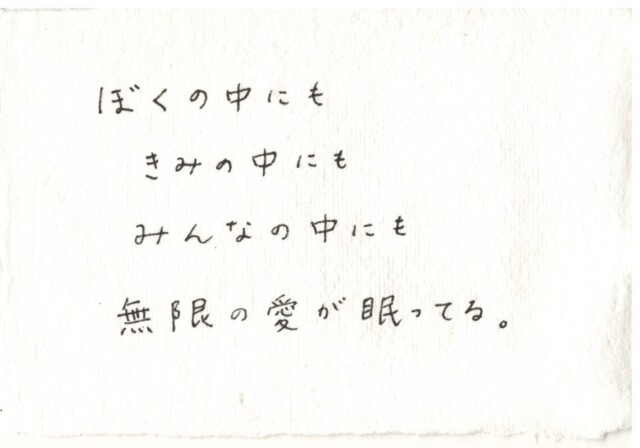 ぼくの中にも
きみの中にも
みんなの中にも
無限の愛が眠ってる。